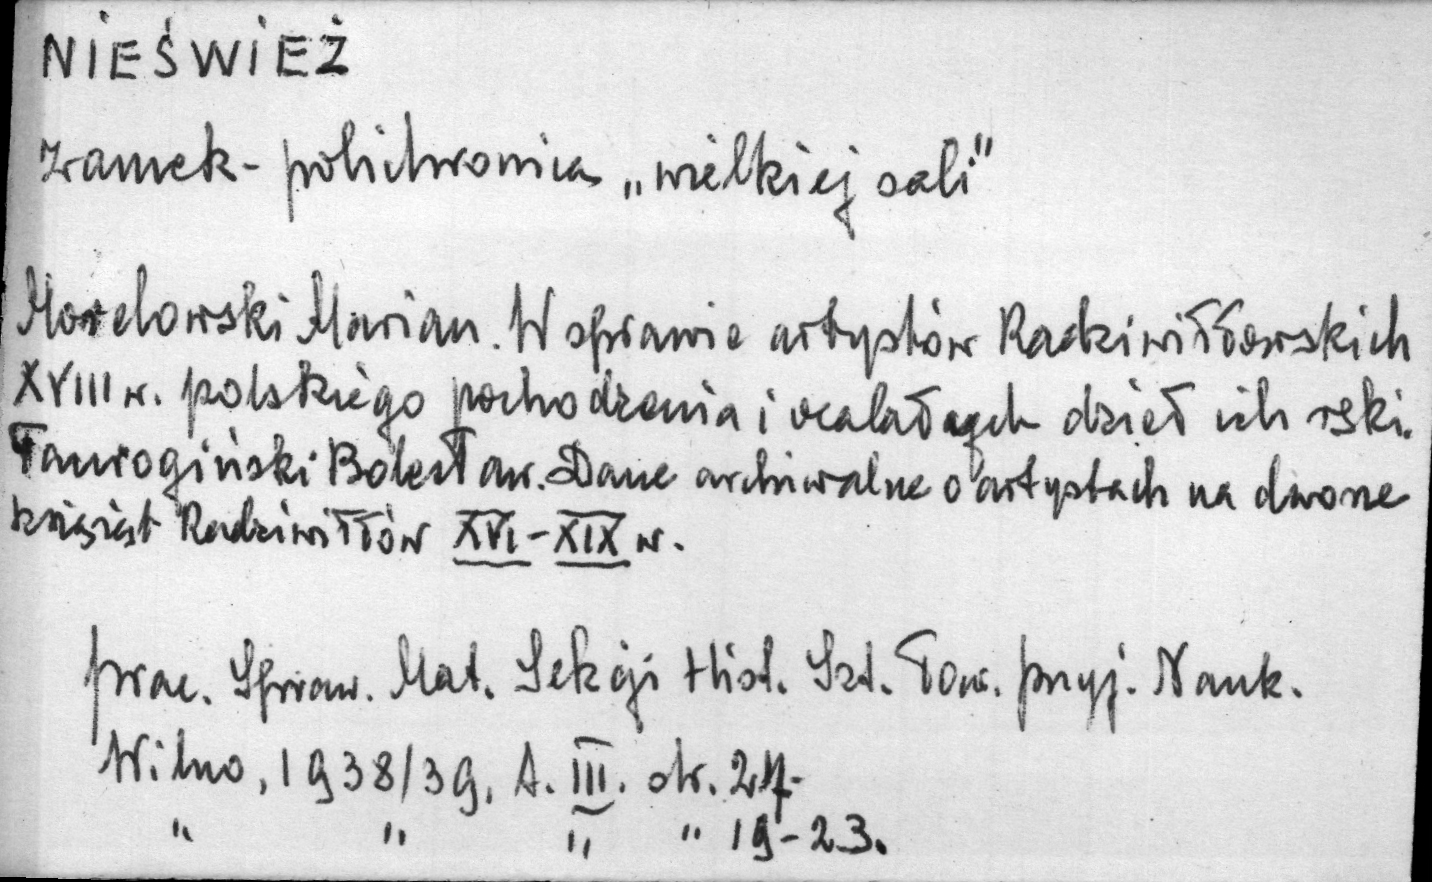 NIEŚWIEŻ
zamek - polichromia „wielkiej sali"
Morelowski Marian. W sprawie artystów Radziwiłłowskich
XVIII w. polskiego pochodzenia i ocalałych dzieł ich
Taurogiński Bolesław. Dane archiwalne o artystach na dworze
książąt Radziwiłłów XVI-XIX w.
prac. Spraw. Mat. Sekcji Hist. Szt. Tow. przyj. Nauk.
Wilno, 1938/39, t. III. str.
" " " " 19-23.